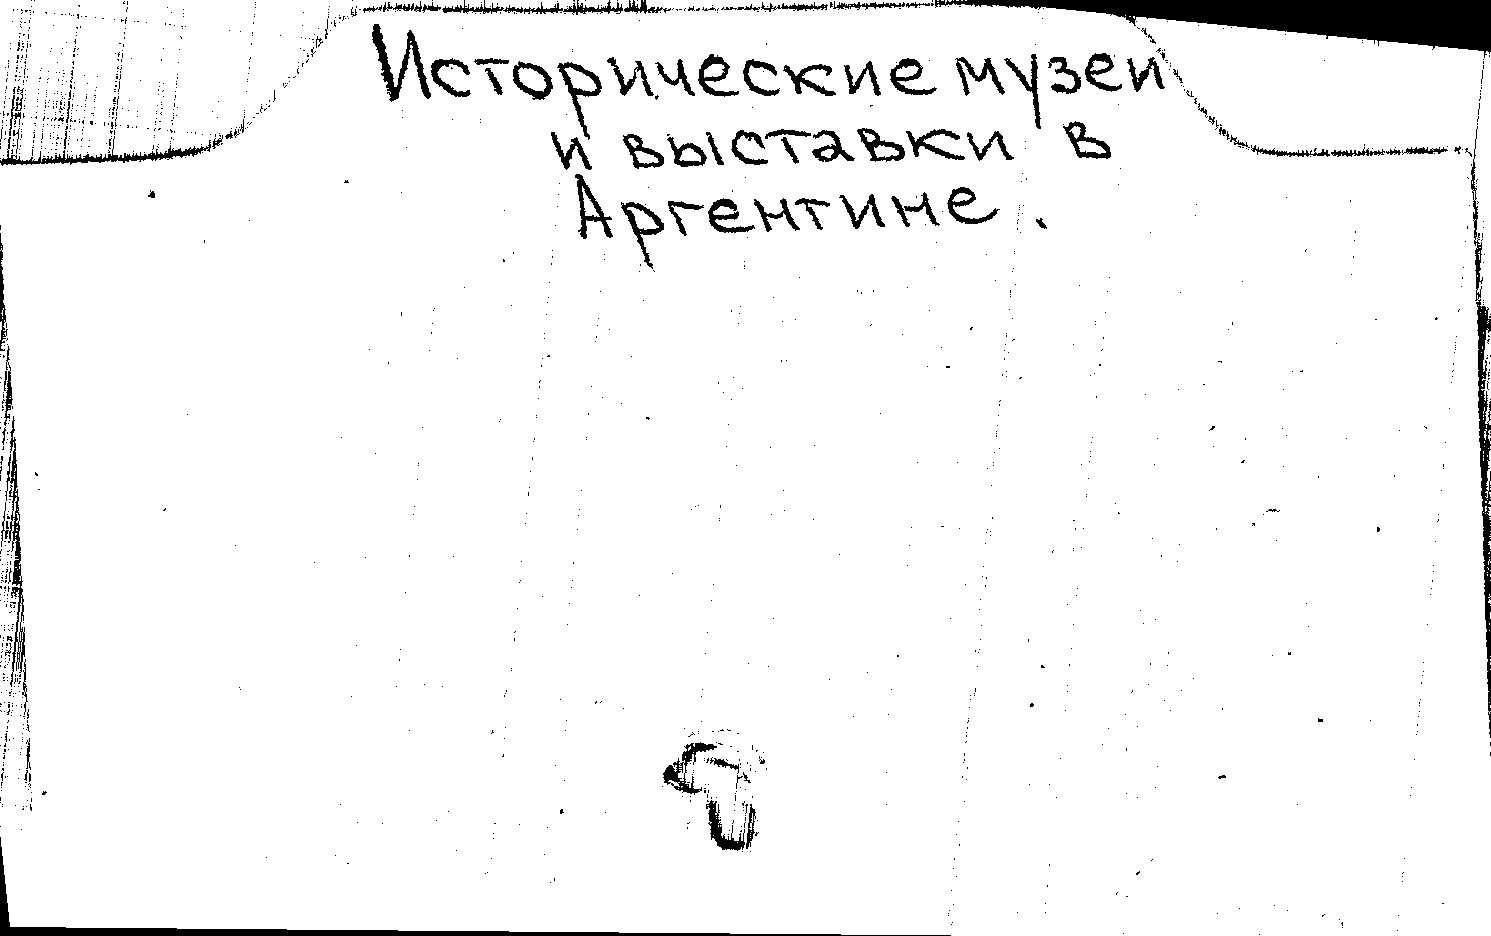 Исторические музеи
и выставки в
Аргентине.